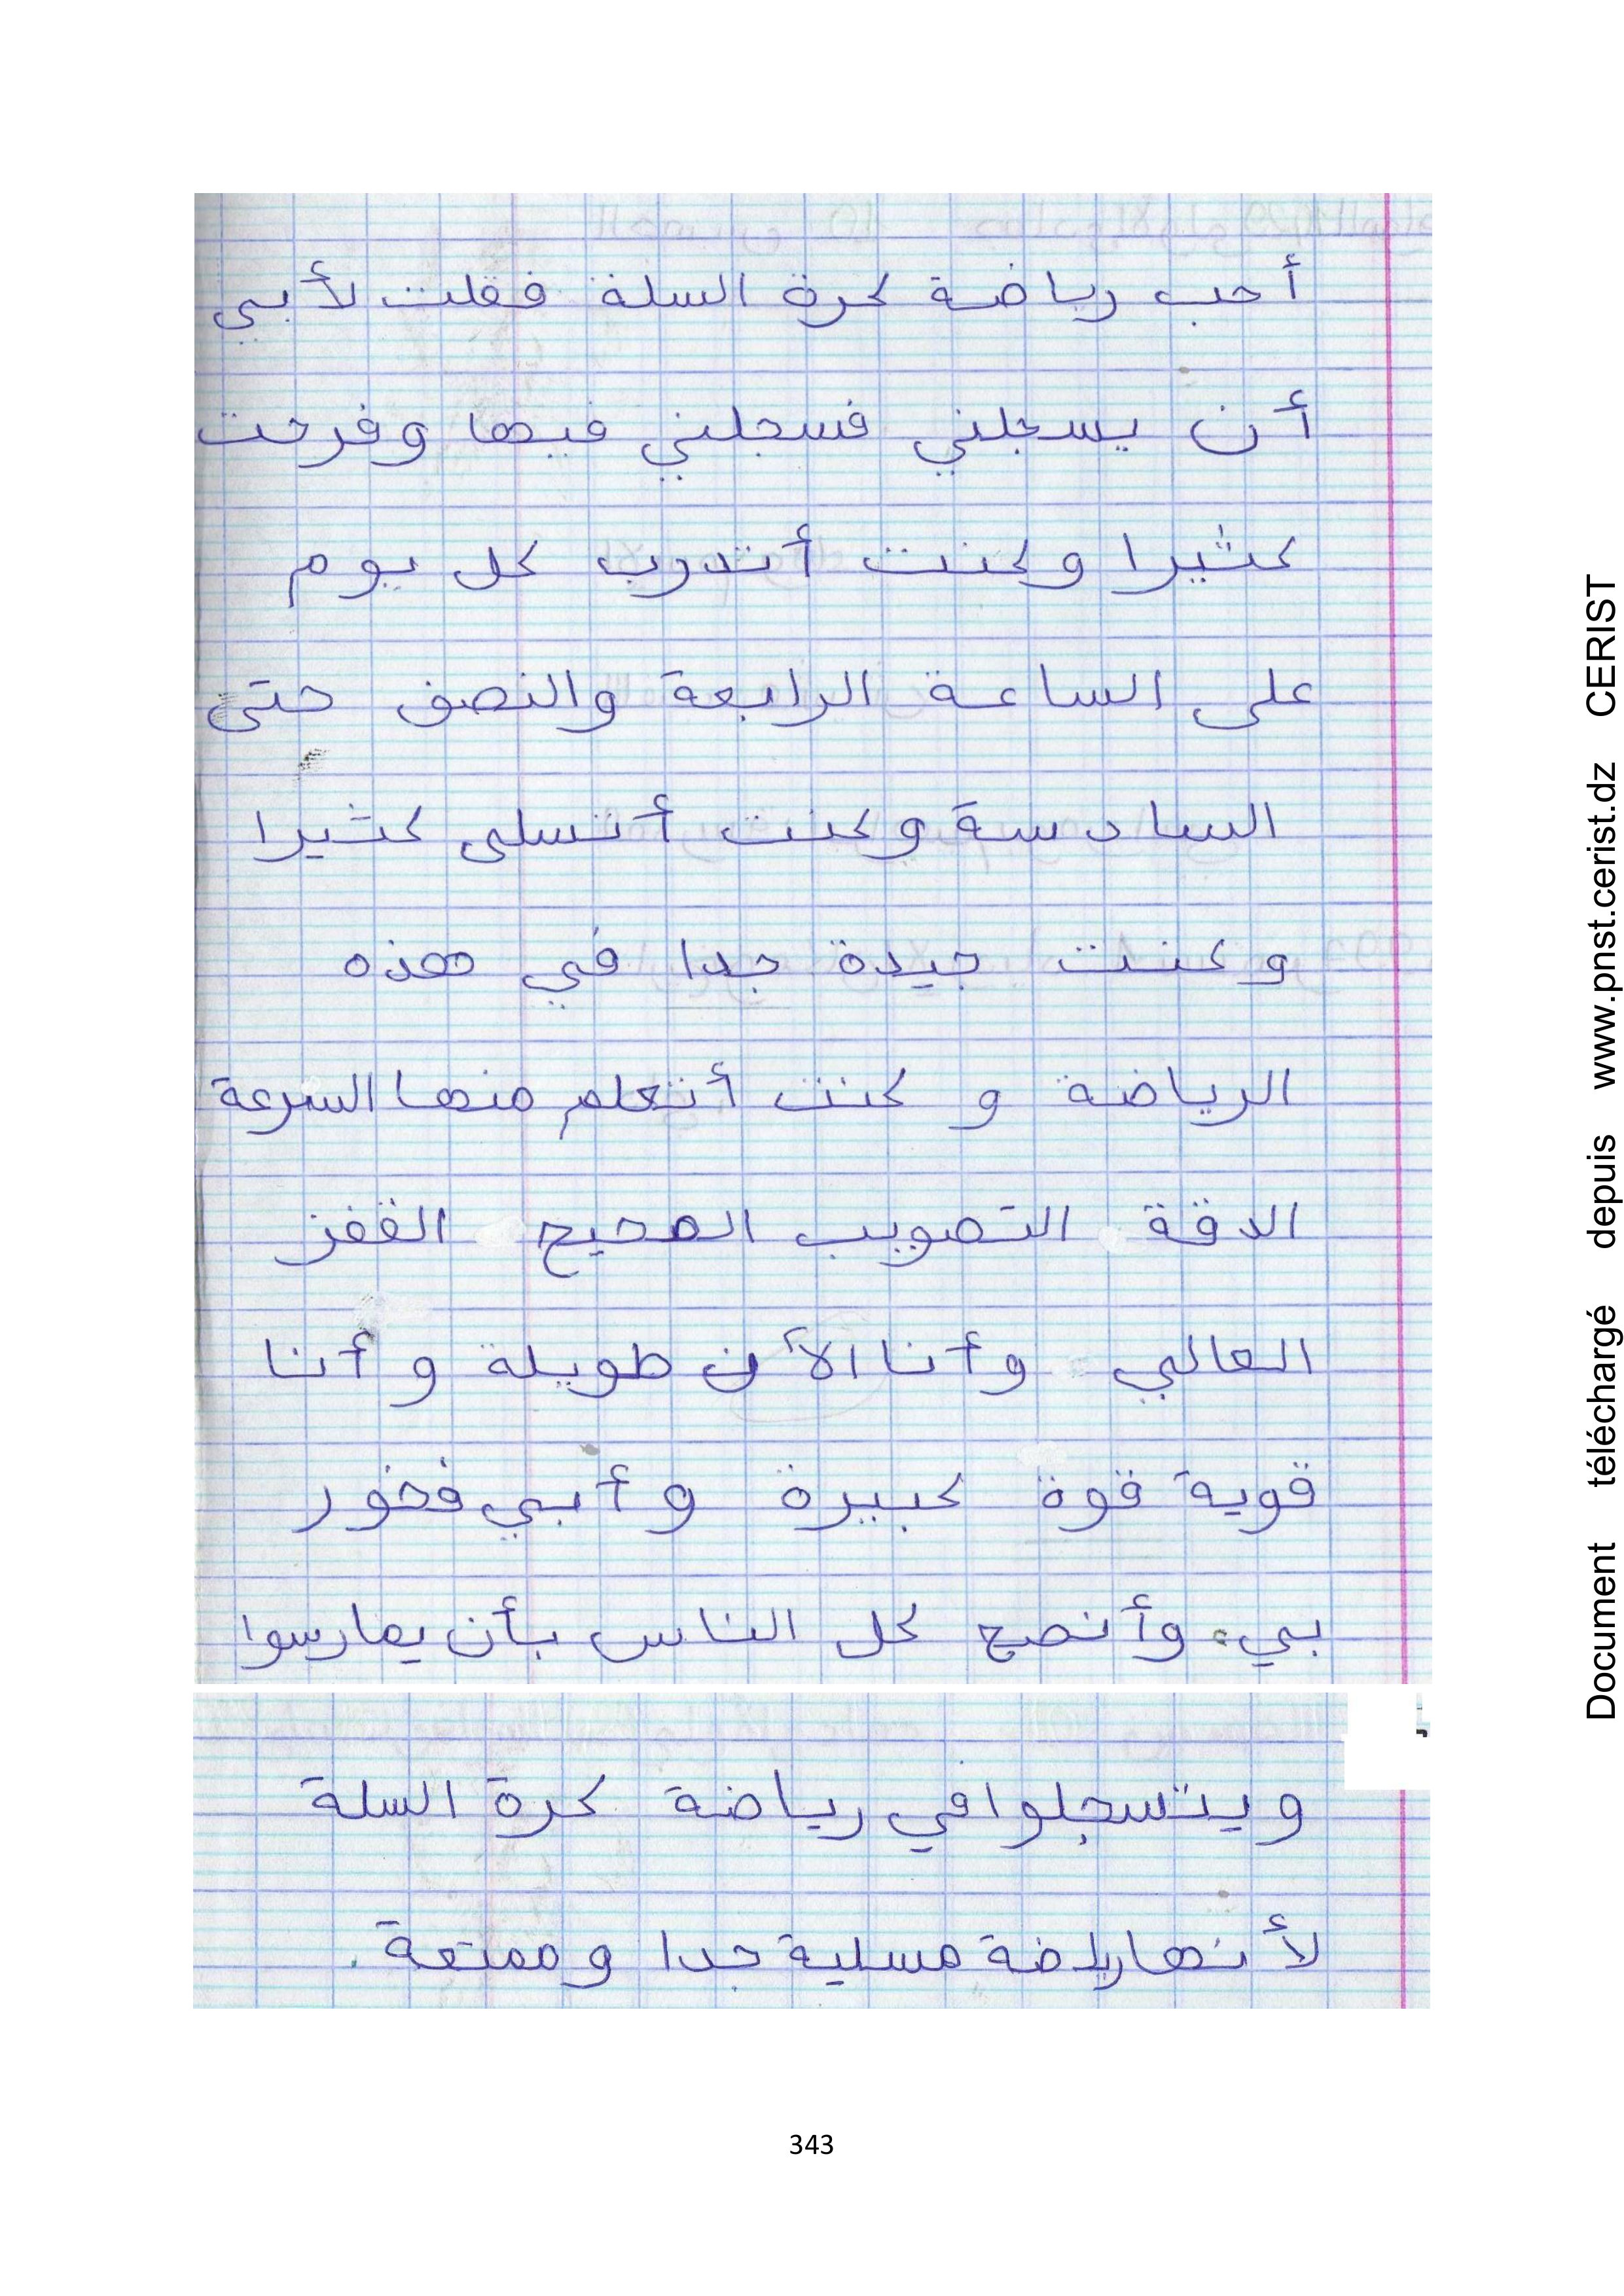 أحب رياضة كرة السلة فقلت لأبي
أن يسجلني فسجلني فيها وفرحت
كثيرا وكنت أتدرب كل يوم
على الساعة الرابعة والنصف حتى
السادسة وكنت أتسلى كثيرا
وكنت جيدة جدا في هذه
الرياضة و كنت أتعلم منها السرعة
الدقة التصويب الصحيح القفز
العالي وأنا الأن طويلة و أنا
قوية قوة كبيرة وأبي فخور
بي. وأنصح كل الناس بأن يمارسوا
ويتسجلوا في رياضة كرة السلة
لأنها رياضة مسلية جدا وممتعة.
343
Document téléchargé depuis www.pnst.cerist.dz CERIST